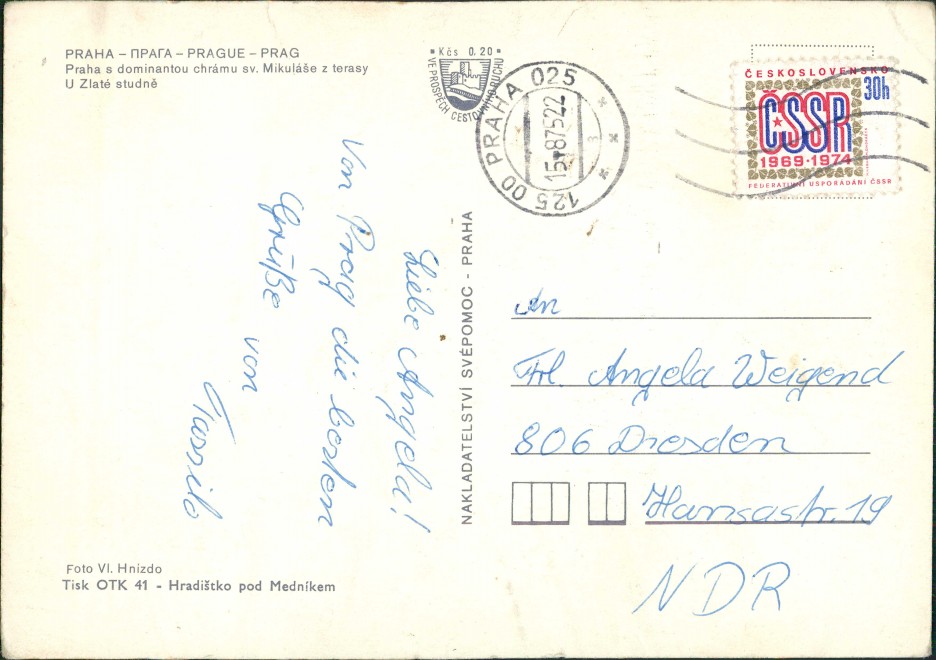 PRAHA – ПРАГА – PRAGUE – PRAG
Praha s dominantou chrámu sv. Mikuláše z terasy
U Zlaté studně
Kčs 0.20
VE PROSPĚCH CESTOVNÍHO RUCHU
125 00 PRAHA 025
15.-8.75-22
ČESKOSLOVENSKO
30h
ČSSR
1969·1974
FEDERATIVNÍ USPOŘÁDÁNÍ ČSSR
Liebe Angela!
Von Prag die besten
Grüße von
Tassilo
NAKLADATELSTVÍ SVÉPOMOC - PRAHA
An
Frl. Angela Weigend
806 Dresden
Hansastr. 19
NDR
Foto Vl. Hnizdo
Tisk OTK 41 - Hradištko pod Medníkem